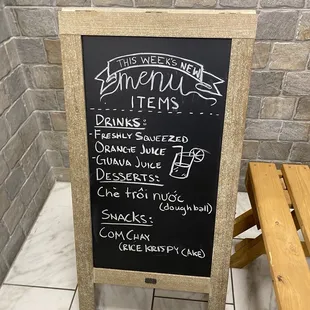 THIS WEEK'S NEW
menu
ITEMS
DRINKS:
-FRESHLY SQUEEZED
ORANGE JUICE
-GUAVA JUICE
DESSERTS:
Chè trôi nước
(doughball)
SNACKS:
COM CHAY
(RICE KRISPY CAKE)